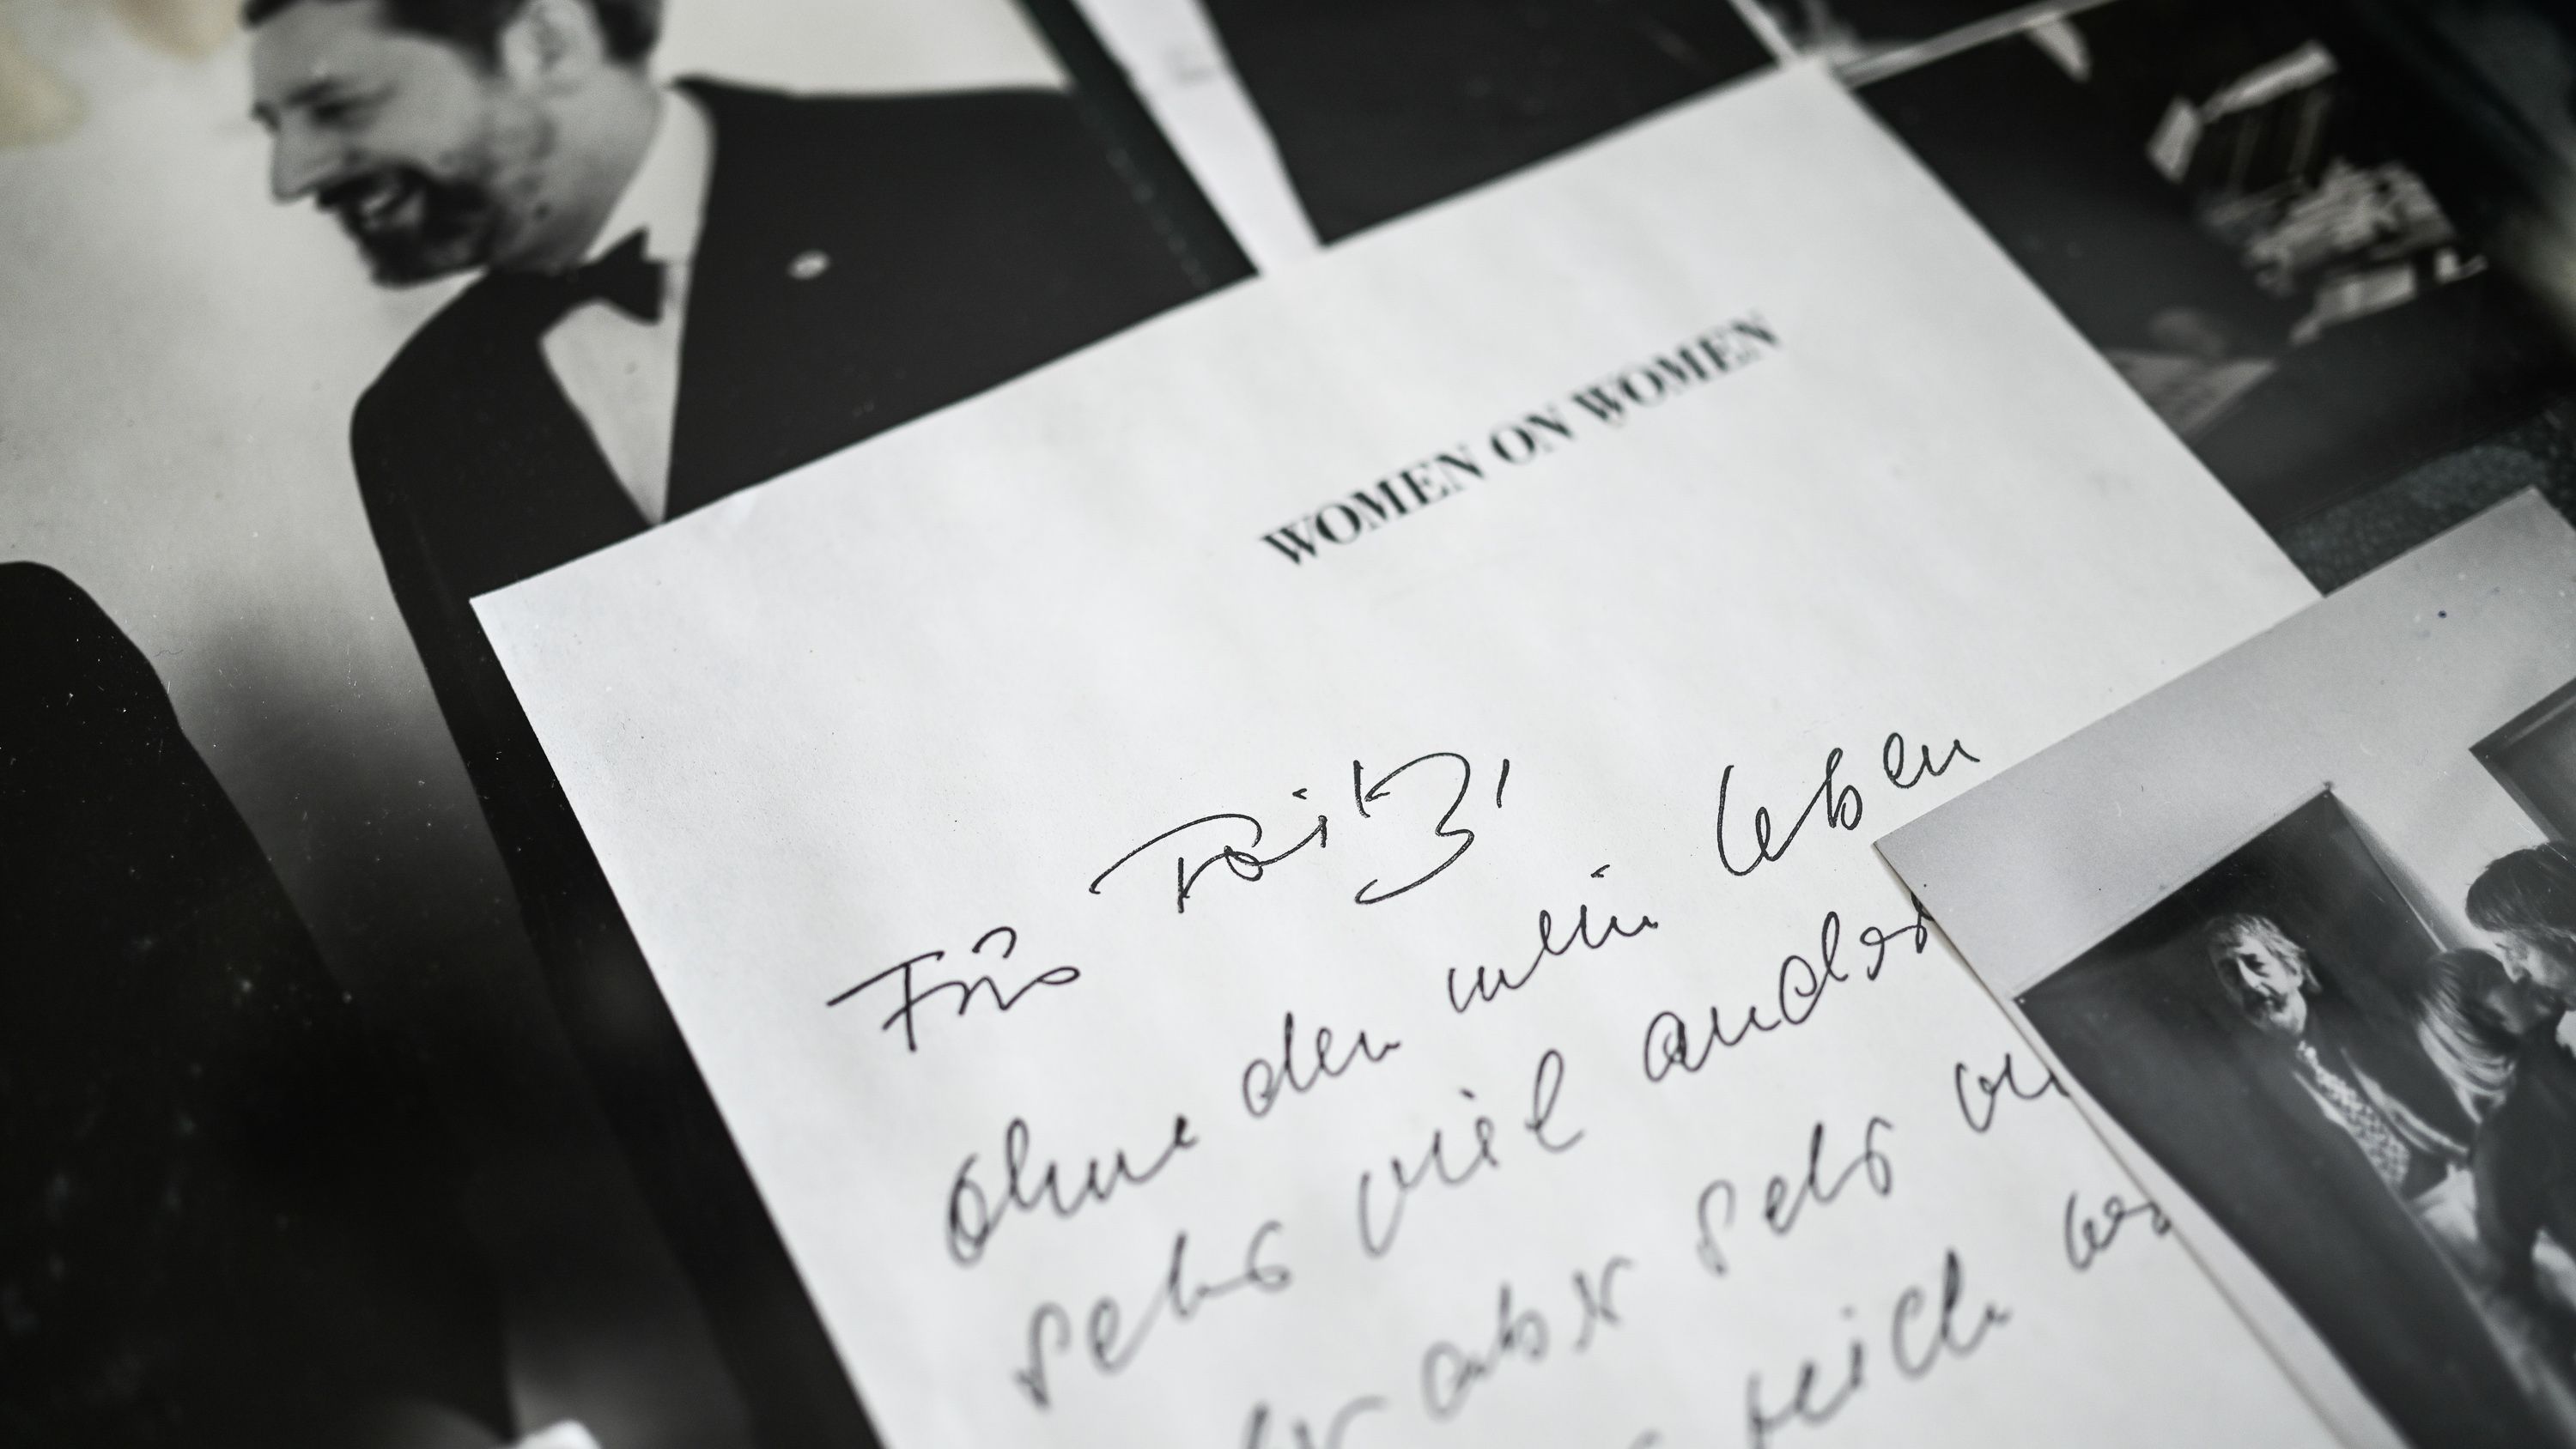 WOMEN ON WOMEN
Für Fritz,
ohne den mein Leben
sehr viel ander
aber sehr
reich